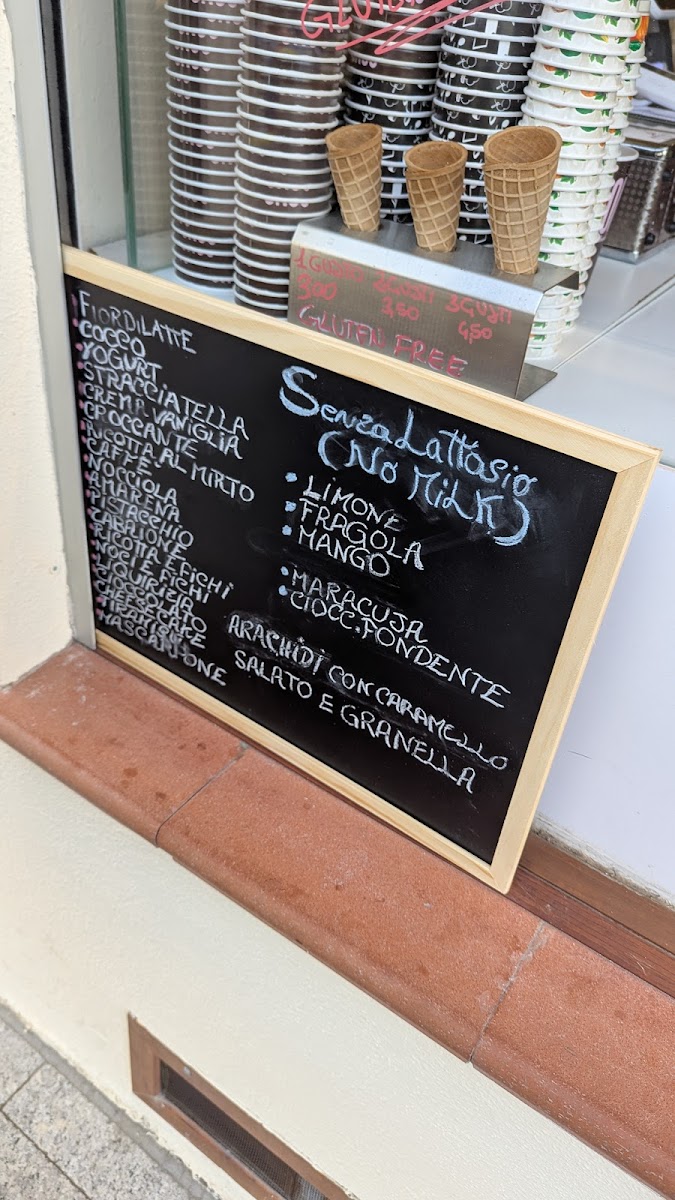 GLUTEN
1 GUSTO 2 GUSTI 3 GUSTI
3,00 3,50 4,50
GLUTEN FREE
FIORDILATTE
COCCO
YOGURT
STRACCIATELLA
CREMA VANIGLIA
CROCCANTE
RICOTTA AL MIRTO
CAFFÈ
NOCCIOLA
AMARENA
PISTACCHIO
ZABAIONE
RICOTTA E FICHI
NOCI E FICHI
LIQUIRIZIA
CIOCCOLATO
MASCARPONE
Senza Lattosio
(No MiLK)
LIMONE
FRAGOLA
MANGO
MARACUJA
CIOCC. FONDENTE
ARACHIDI CON CARAMELLO
SALATO E GRANELLA